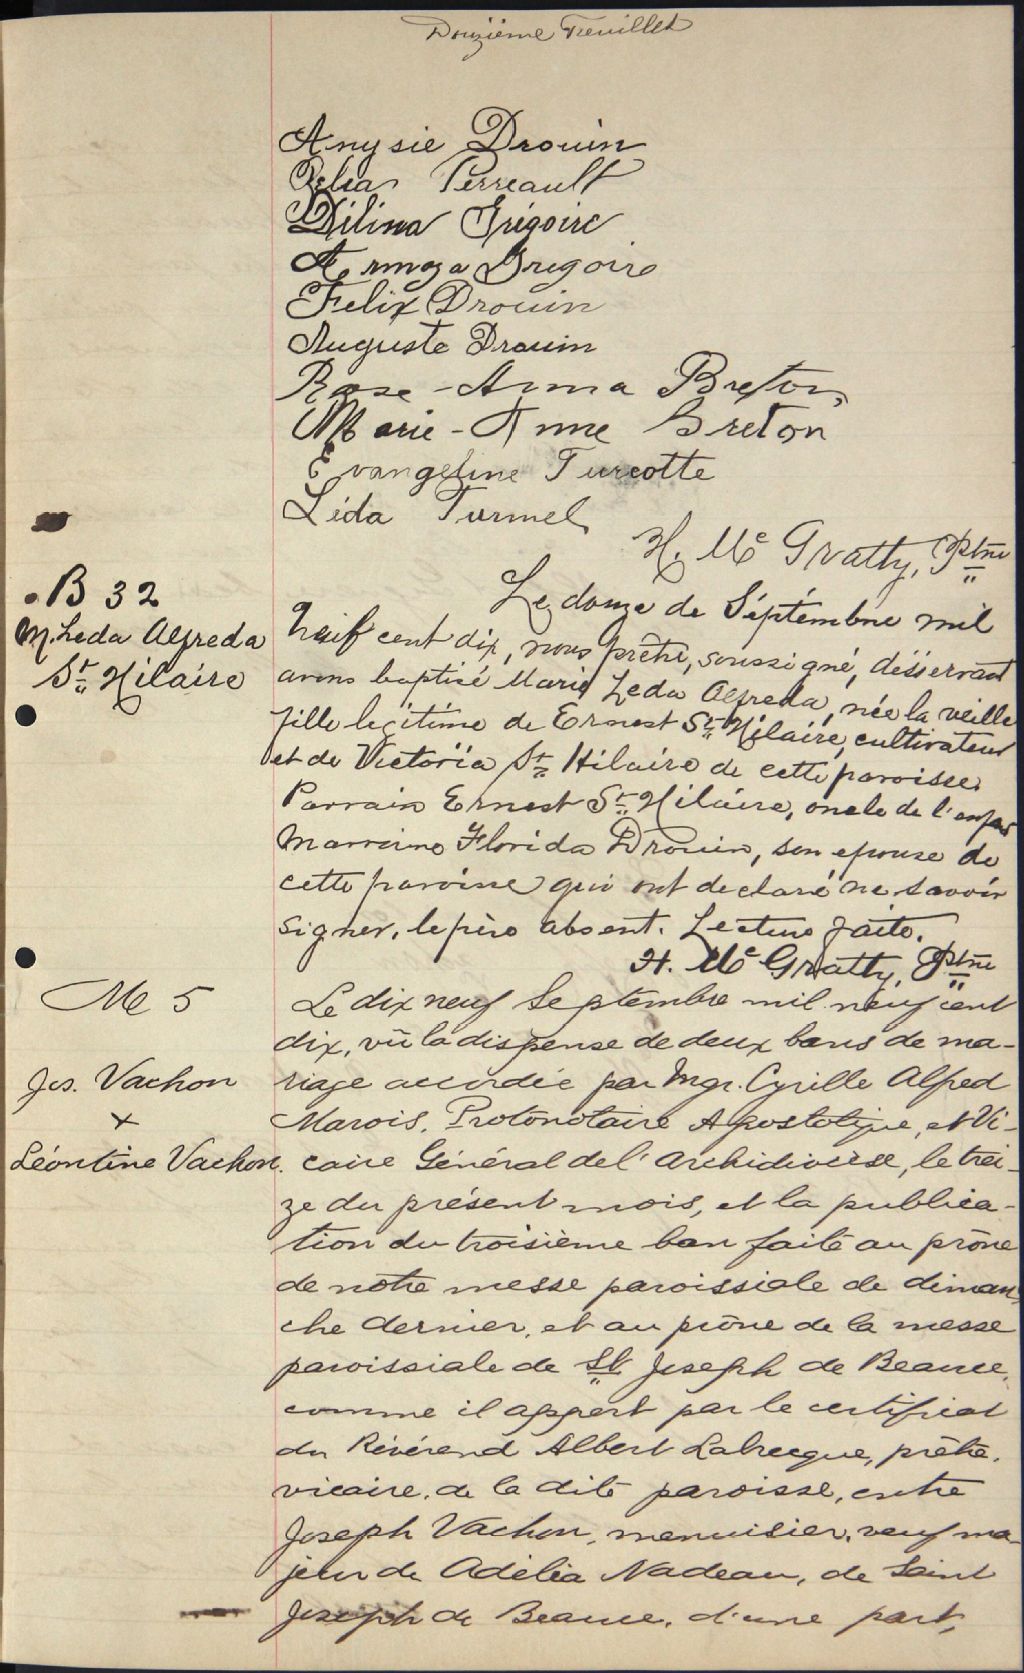 Douzième Feuillet
Anysie Drouin
Perreault
Délina Grégoire
Armoza Gregoire
Felix Drouin
Auguste Drouin
Rose-Anna Breton,
Marie-Anne Breton
Evangeline Turcotte
Léda Turmel
H. Mc Gratty, Ptre
B 32
M. Leda Alfreda
St Hilaire
Le douze de Séptémbre mil
Neuf cent dix, nous prêtre, soussigné, désservant
avons baptisé Marie Leda Alfreda, née la veille
fille legitime de Ernest St Hilaire, cultivateur
et de Victoria St Hilaire de cette paroisse.
Parrain Ernest St Hilaire, oncle de l'enfant
Marraine Florida Drouin, son epouse de
cette paroisse qui ont declaré ne savoir
signer, le père absent. Lecture faite.
H. Mc Gratty, Ptre
M 5
Jos. Vachon
x
Léontine Vachon.
Le dix neuf Septembre mil neuf cent
dix, vû la dispense de deux bans de ma-
riage accordée par Mgr. Cyrille Alfred
Marois, Protonotaire Apostolique, et Vi-
caire Général de l'Archidiocèse, le trei-
ze du présent mois, et la publica-
tion du troisième ban faite au prône
de notre messe paroissiale de diman-
che dernier, et au prône de la messe
paroissiale de St Joseph de Beauce,
comme il appert par le certificat
du Révérend Albert Labrecque, prêtre,
vicaire, de la dite paroisse, entre
Joseph Vachon, menuisier, veuf ma-
jeur de Adélia Nadeau, de Saint
Joseph de Beauce, d'une part,